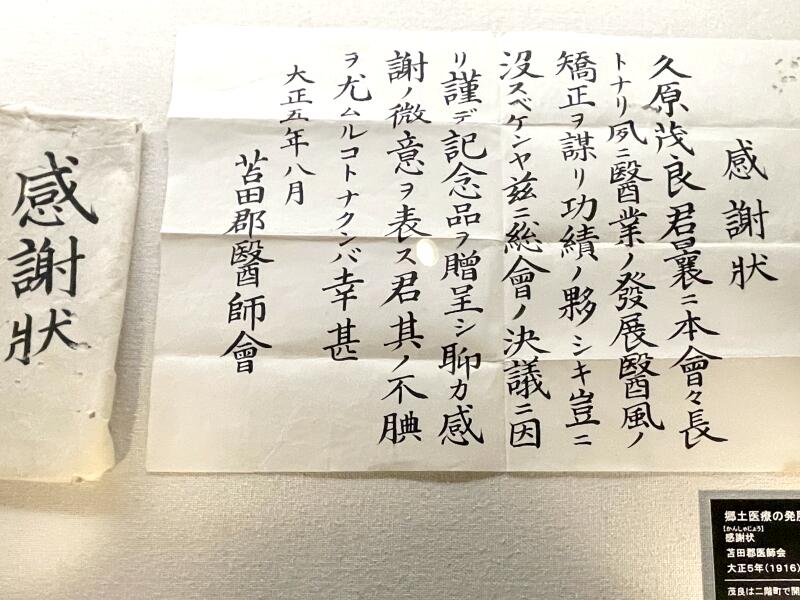 感謝狀
久原茂良君曩ニ本會々長
トナリ夙ニ醫業ノ發展醫風ノ
矯正ヲ謀リ功績ノ夥シキ豈ニ
没スベケンヤ茲ニ総會ノ決議ニ因
リ謹デ記念品ヲ贈呈シ聊カ感
謝ノ微意ヲ表ス君其ノ不腆
ヲ尤ムルコトナクンバ幸甚
大正五年八月
苫田郡醫師會
感謝狀
郷土医療の発展
【かんしゃじょう】
感謝状
苫田郡医師会
大正5年(1916)
茂良は二階町で開